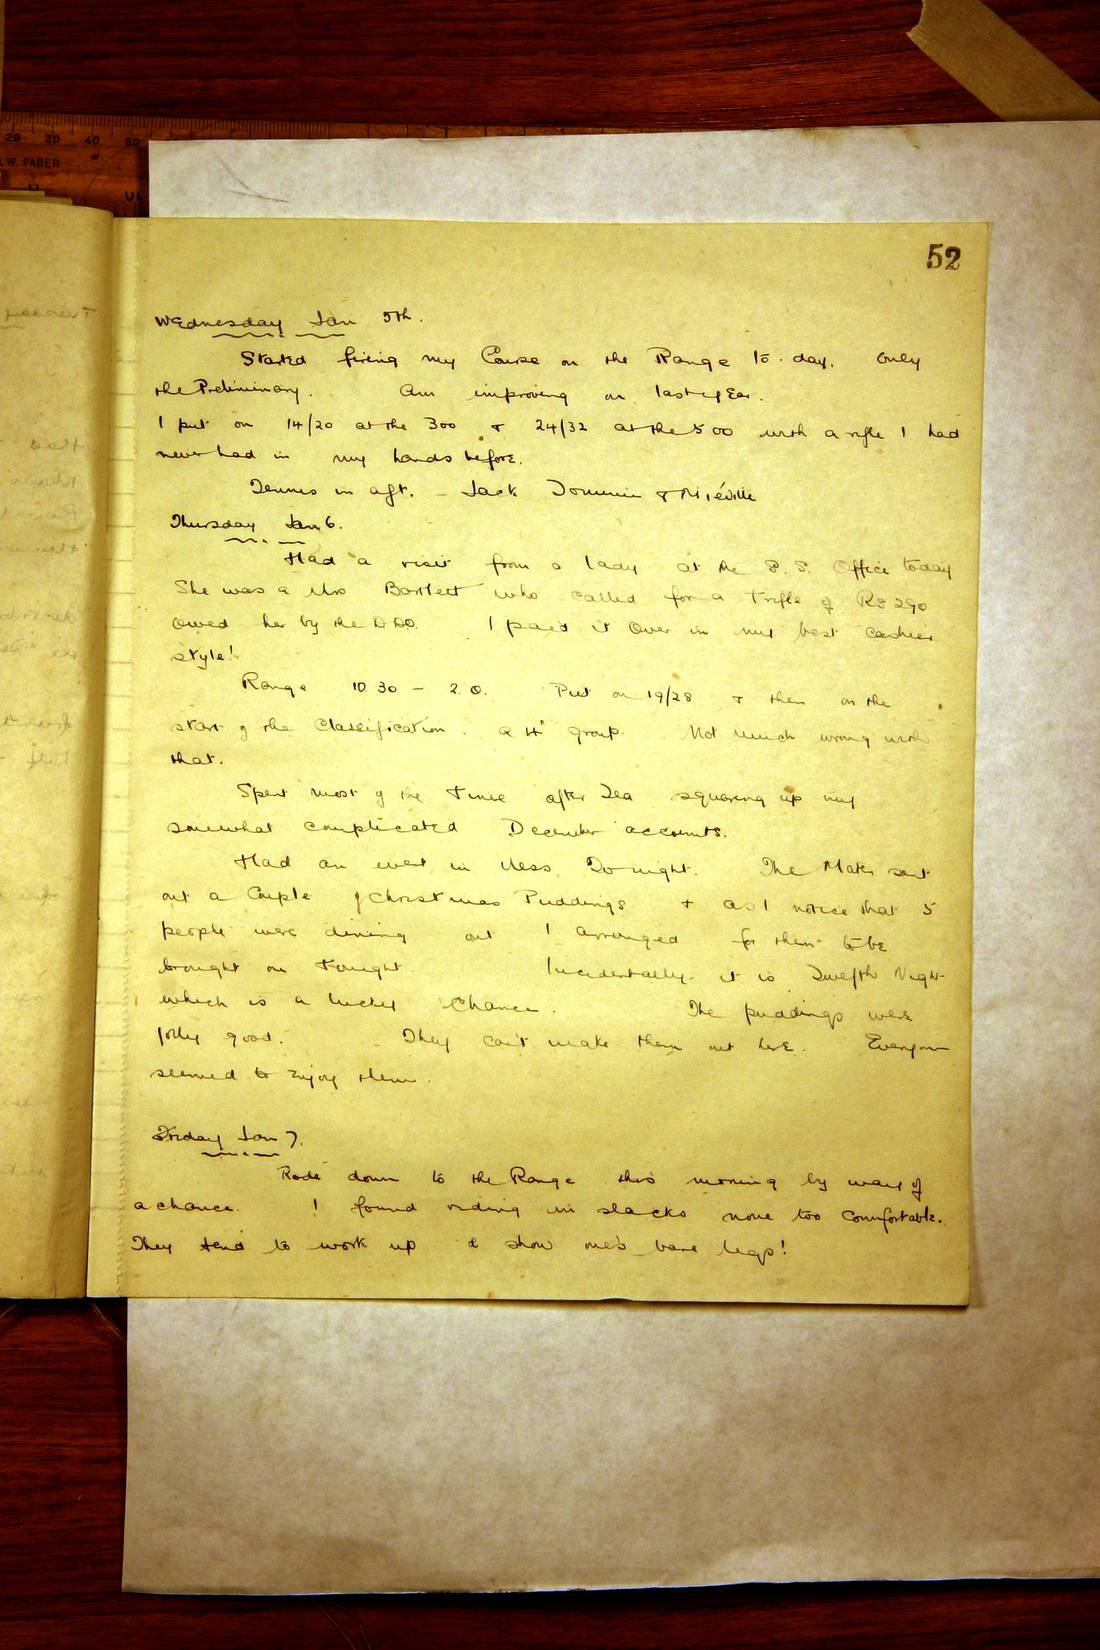 20 30 40 50
W. FABER
52
Wednesday Jan 5th.
Started firing my Course on the Range to-day. Only
the Preliminary. Am improving on last year.
I put on 14/20 at the 300 & 24/32 at the 500 with a rifle I had
never had in my hands before.
Tennis in aft. - Jack Dominic & Miéville
Thursday Jan 6.
Had a visit from a lady at the Office today
She was a Mrs Bartlett who called for a trifle of Rs 290
owed her by the DDO. I paid it over in my best cashier
style!
Range 10.30 - 2.0. Put on 19/28 & then on the
start of the Classification a 4" group. Not much wrong with
that.
Spent most of the time after Tea squaring up my
somewhat complicated December accounts.
Had an event in Mess Tonight. The Mater sent
out a couple of Christmas Puddings & as I notice that 5
people were dining out I arranged for them to be
brought on tonight. Incidentally it is Twelfth Night
which is a lucky chance. The puddings were
jolly good. They can't make them out here. Everyone
seemed to enjoy them.
Friday Jan 7.
Rode down to the Range this morning by way of
a chance. I found riding in slacks none too comfortable.
They tend to work up & show one's bare legs!